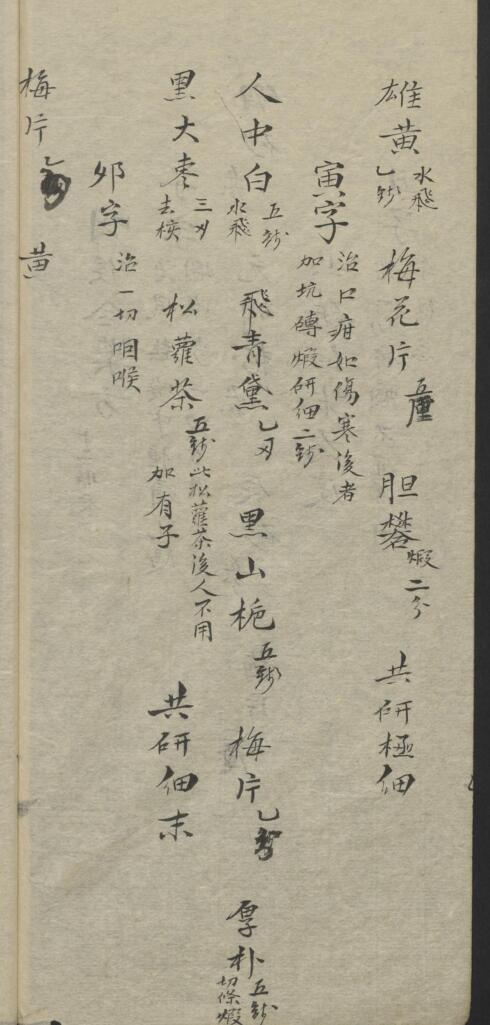 雄黄 水飛 乙錢 梅花片 五厘 胆礬 煅 二分 共研極細
寅字 治口疳如傷寒後者
加坑磚煅研細二錢
人中白 五錢 水飛 飛青黛 乙刄 黑山栀 五錢 梅片 乙 厚朴 五錢 切條煅
黑大枣 三刄 去核 松蘿茶 五錢 此松蘿茶後人不用 加有子 共研細末
夘字 治一切咽喉
梅片 乙 黄